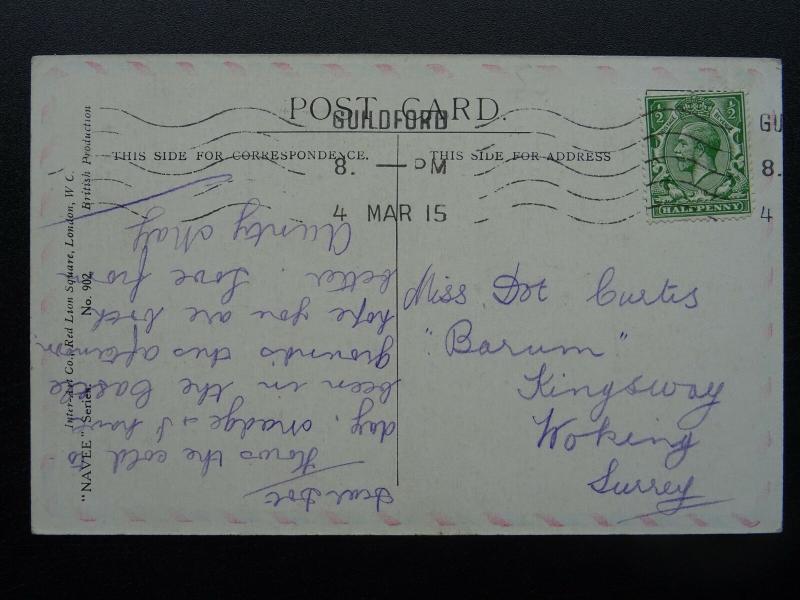 POST CARD.
THIS SIDE FOR CORRESPONDENCE.
THIS SIDE FOR ADDRESS
GUILDFORD
8. — PM
4 MAR 15
GU
8.
4
½ ½
HALFPENNY
Miss Dot Curtis
"Barum"
Kingsway
Woking
Surrey
Dear Dot
Hows the cold to
day. Madge & I have
been in the Castle
grounds this afternoon
hope you are both
better. Love from
Aunty May
Inter-Art Co., Red Lion Square, London, W C.
"NAVEE" Series. No. 902. British Production